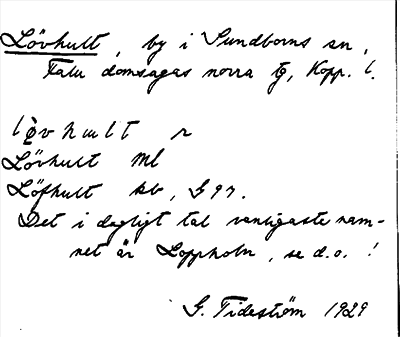 Lövhult, by i Sundborns sn,
Falu domsagas norra tg, Kopp. l.
lövhult r
Lövhult ml
Löfhult kb, G 97.
Det i dagligt tal vanligaste nam-
net är Loppholn, se d.o. !
G. Tideström 1929